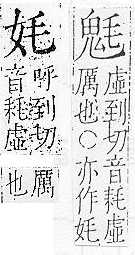 虛到切音耗虛
厲也○亦作㚪
㚪
呼到切
音耗虛
厲
也